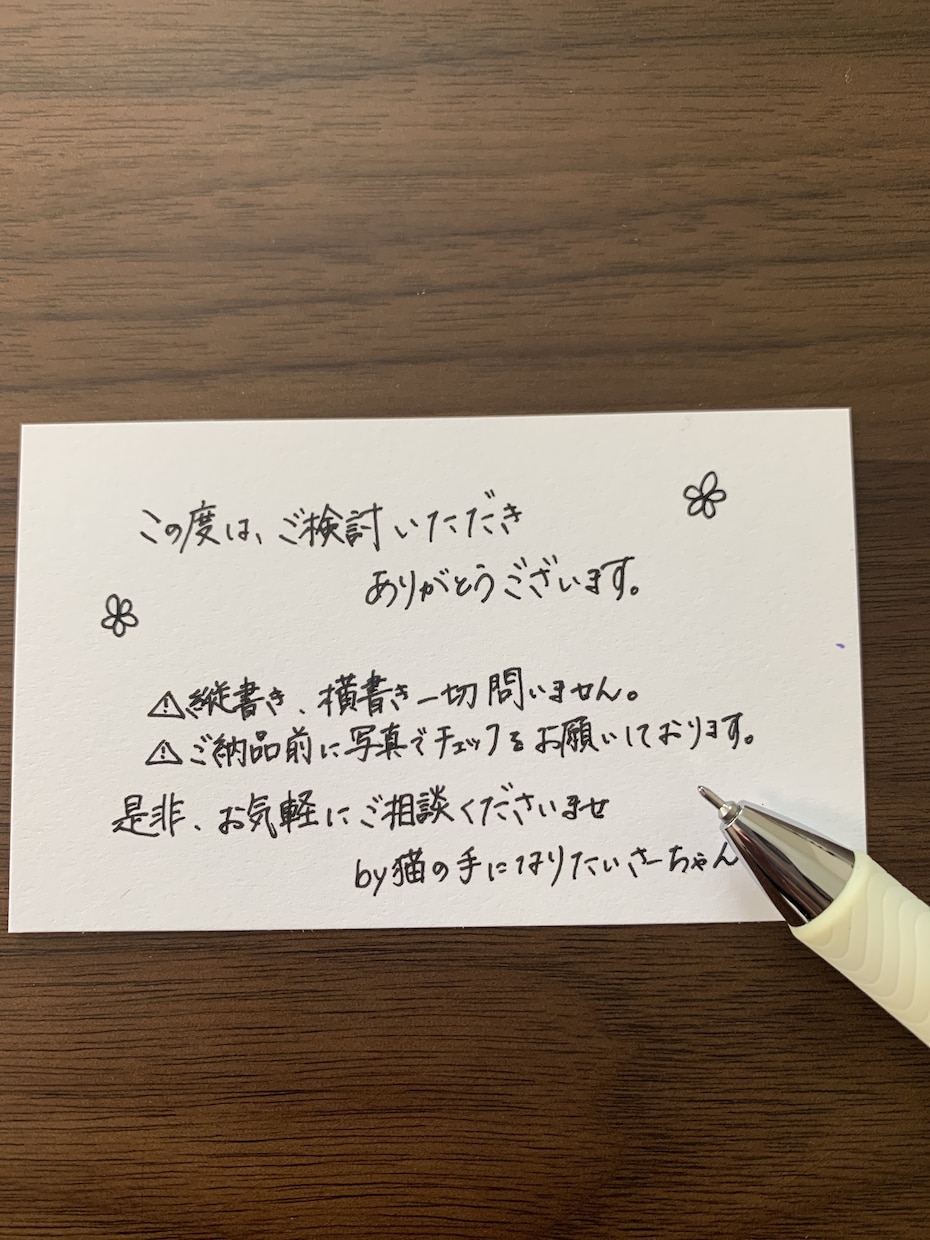 この度は、ご検討いただき
ありがとうございます。
⚠縦書き、横書き一切問いません。
⚠ご納品前に写真でチェックをお願いしております。
是非、お気軽にご相談くださいませ
by猫の手になりたいさーちゃん